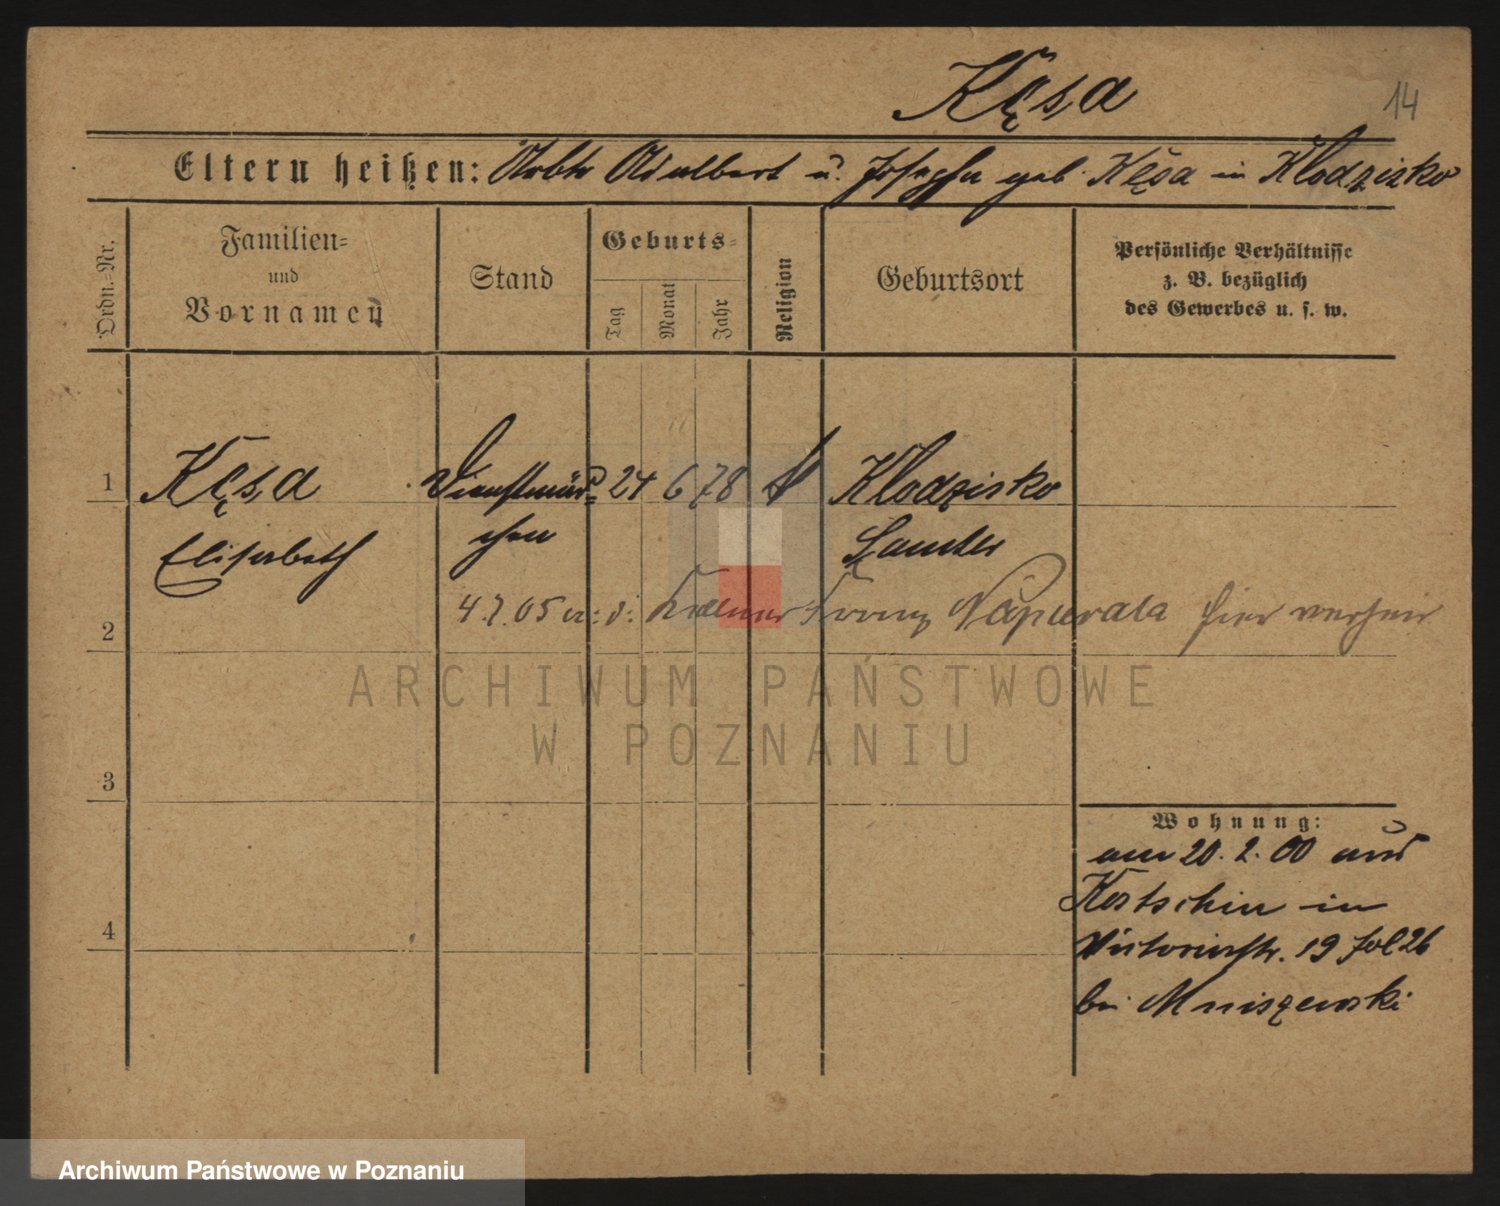 Kęsa
14
Eltern heißen: Arbtr Adalbert u. Josepha geb. Kęsa in Klodzisko
Ordn.-Nr.
Familien-
und
Vornamen
Stand
Geburts-
Tag
Monat
Jahr
Religion
Geburtsort
Persönliche Verhältnisse
z. B. bezüglich
des Gewerbes u. s. w.
1
Kęsa
Dienstmäd-
24 6 78
Klodzisko
Elisabeth
chen
Samter
2
4.7.05 m. d. Kellner Franz Napierala hier verheir
ARCHIWUM PAŃSTWOWE
W POZNANIU
3
Wohnung:
am 20. 2. 00 aus
Kostschin in
4
Victoriastr. 19 fol 26
bei Mniszewski
Archiwum Państwowe w Poznaniu